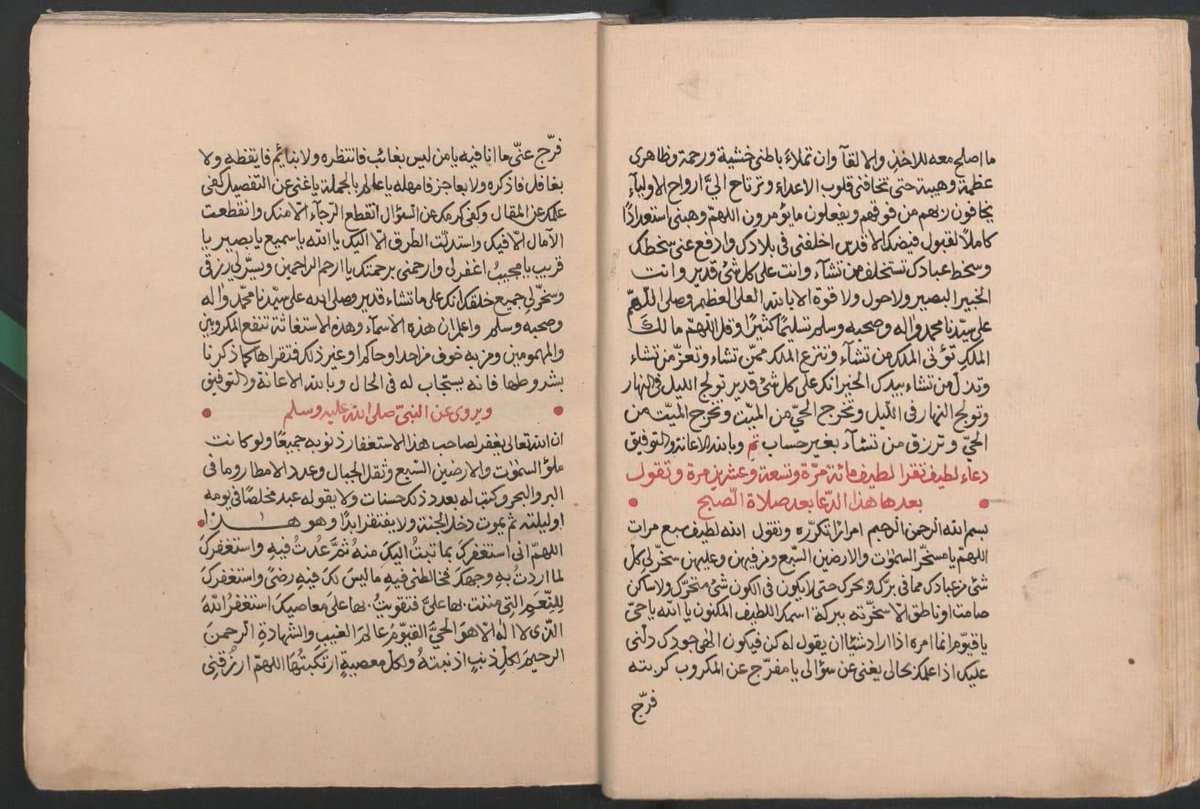 ما اصلح معه للاخذ والالقآ وان تملاء باطنى خشية ورحمة وظاهرى
عظمة وهيبة حتى تخافنى قلوب الاعداء وترتاح اليّ ارواح الاوليآء
يخافون ربهم من فوقهم ويفعلون ما يؤمرون اللهمّ وهبنى استعدادًا
كاملًا لقبول فيضك الاقدس اخلفنى فى بلادك وادفع عنى سخطك
وسخط عبادك تستخلف من تشآء وانت على كل شئ قدير وانت
الخبير البصير ولا حول ولا قوة الا بالله العلى العظيم وصلى اللّهمّ
على سيّدنا محمد واله وصحبه وسلم تسليمًا كثيرًا وقل اللّهمّ مالك
الملك تؤتى الملك من تشآء وتنزع الملك ممّن تشاء وتعزّ من تشاء
وتذلّ من تشاء بيدك الخير انك على كل شئ قدير تولج الليل فى النهار
وتولج النهار فى الليل وتخرج الحيّ من الميّت وتخرج الميّت من
الحيّ وترزق من تشآء بغير حساب تم وبالله الاعانة والتوفيق
دعاء لطيف تقرا لطيف مائة مرّة وتسعة وعشرين مرة وتقول
بعدها هذا الدّعا بعد صلاة الصّبح
بسم الله الرحمن الرحيم امرارًا تكرّره وتقول الله لطيف سبع مرات
اللهمّ يا مسخّر السموٰت والارضين السّبع ومن فيهن وعليهن سخر لى كلّ
شئ من عبادك مما فى برّك وبحرك حتى لا يكون فى الكون شئ متحرّك ولا ساكن
صامت او ناطق الا سخّرته ببركة اسمك اللطيف المكنون يا الله يا حيّ
يا قيّوم انما امره اذا اراد شيئا ان يقول له كن فيكون الهى جودك دلّنى
عليك اذ اعلمك بحالى يغنى عن سؤالى يا مفرّج عن المكروب كربته
فرّج
فرّج عنّى ما انا فيه يا من ليس بغائب فانتظره ولا بنائم فايقظه ولا
بغافل فاذكره ولا بعاجز فامهله يا عالم بالجملة يا غنى عن التفصيل كفى
علمك عن المقال وكفى كرمك عن السؤال انقطع الرجآء الا منك وانقطعت
الآمال الّا فيك واستدلّت الطرق الّا اليك يا الله يا سميع يا بصير يا
قريب يا مجيب اغفر لى وارحمنى برحمتك يا ارحم الراحمين ويسّر لى رزقى
وسخّر لى جميع خلقك انك على ما تشاء قدير وصلى الله على سيّدنا محمّد واله
وصحبه وسلم واعلم ان هذه الاسمآء وهذه الاستغاثة تنفع المكروبين
والمهمومين ومن به خوف من احد او حاكم او غير ذلك فتقراها كما ذكرنا
بشروطها فانه يستجاب له فى الحال وبالله الاعانة والتوفيق
ويروى عن النبىّ صلى الله عليه وسلم
ان الله تعالى يغفر لصاحب هذا الاستغفار ذنوبه جميعًا ولو كانت
ملؤ السموٰت والارضين السّبع وثقل الجبال وعدد الامطار وما فى
البر والبحر وكتب له بعدد ذلك حسنات ولا يقوله عبد مخلصًا فى يومه
او ليلته ثم يموت دخل الجنة ولا يفتقر ابدًا وهو هذا
اللهمّ انى استغفرك بما تبتُ اليك منهُ ثمَّ عُدتُ فيهِ واستغفركَ
لما اردتُ بهِ وجهكَ فخالطنى فيهِ ما ليسَ لكَ فيهِ رضىً واستغفركَ
للنّعَمِ التى مننتَ بها عليَّ فتقويتُ بها على معاصيكَ استغفرُ اللهَ
الذى لا اله الّا هو الحيُّ القيّومُ عالمَ الغيبِ والشهادةِ الرحمنَ
الرحيمَ لكلِّ ذنبٍ اذنبتهُ ولكلِّ معصيةٍ ارتكبتُها اللهمّ ارزقنى